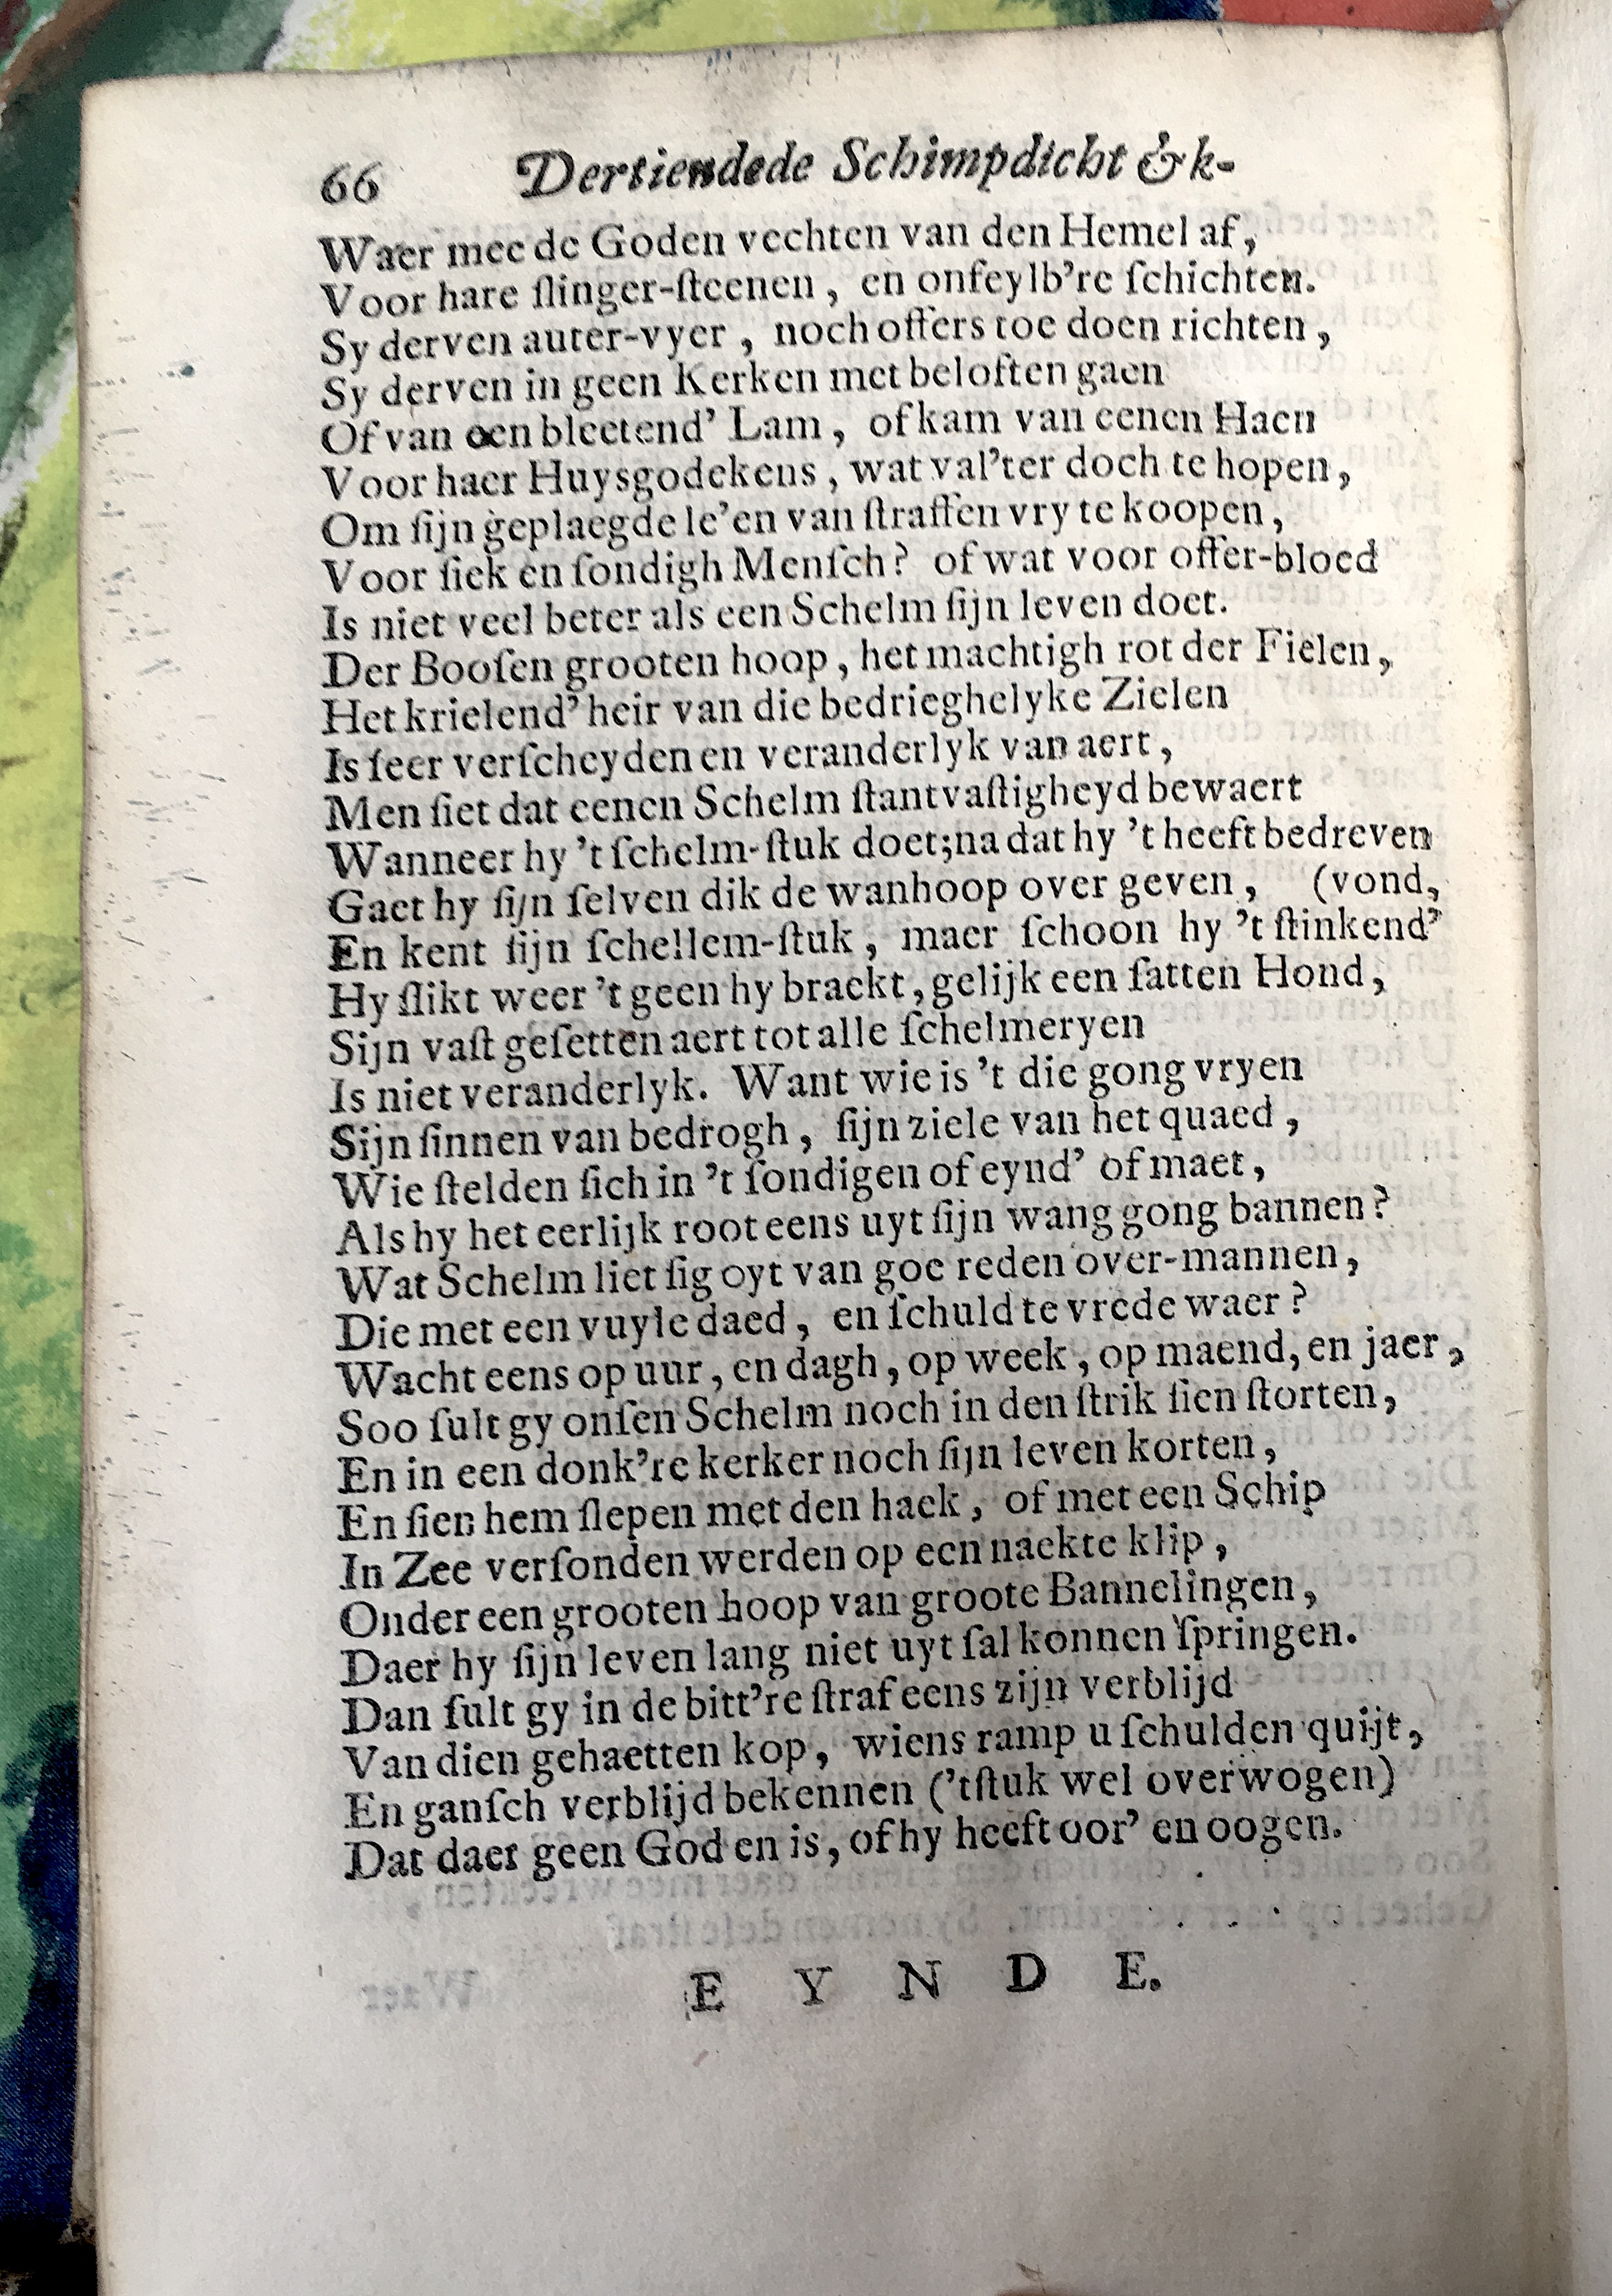 66 Dertiendede Schimpdicht &k-
Waer mee de Goden vechten van den Hemel af,
Voor hare ſlinger-ſteenen, en onfeylb're ſchichten.
Sy derven auter-vyer, noch offers toe doen richten,
Sy derven in geen Kerken met beloften gaen
Of van een bleetend' Lam, of kam van eenen Haen
Voor haer Huysgodekens, wat val'ter doch te hopen,
Om ſijn geplaegde le'en van ſtraffen vry te koopen,
Voor ſiek en ſondigh Menſch? of wat voor offer-bloed
Is niet veel beter als een Schelm ſijn leven doet.
Der Booſen grooten hoop, het machtigh rot der Fielen,
Het krielend' heir van die bedrieghelyke Zielen
Is ſeer verſcheyden en veranderlyk van aert,
Men ſiet dat eenen Schelm ſtantvaſtigheyd bewaert
Wanneer hy 't ſchelm-ſtuk doet; na dat hy 't heeft bedreven
Gaet hy ſijn ſelven dik de wanhoop over geven, (vond,
En kent ſijn ſchellem-ſtuk, maer ſchoon hy 't ſtinkend'
Hy ſlikt weer 't geen hy braekt, gelijk een ſatten Hond,
Sijn vaſt geſetten aert tot alle ſchelmeryen
Is niet veranderlyk. Want wie is 't die gong vryen
Sijn ſinnen van bedrogh, ſijn ziele van het quaed,
Wie ſtelden ſich in 't ſondigen of eynd' of maet,
Als hy het eerlijk root eens uyt ſijn wang gong bannen?
Wat Schelm liet ſig oyt van goe reden over-mannen,
Die met een vuyle daed, en ſchuld te vrede waer?
Wacht eens op uur, en dagh, op week, op maend, en jaer,
Soo ſult gy onſen Schelm noch in den ſtrik ſien ſtorten,
En in een donk're kerker noch ſijn leven korten,
En ſien hem ſlepen met den haek, of met een Schip
In Zee verſonden werden op een naekte klip,
Onder een grooten hoop van groote Bannelingen,
Daer hy ſijn leven lang niet uyt ſal konnen ſpringen.
Dan ſult gy in de bitt're ſtraf eens zijn verblijd
Van dien gehaetten kop, wiens ramp u ſchulden quijt,
En ganſch verblijd bekennen ('t ſtuk wel overwogen)
Dat daer geen God en is, of hy heeft oor' en oogen.
E Y N D E.